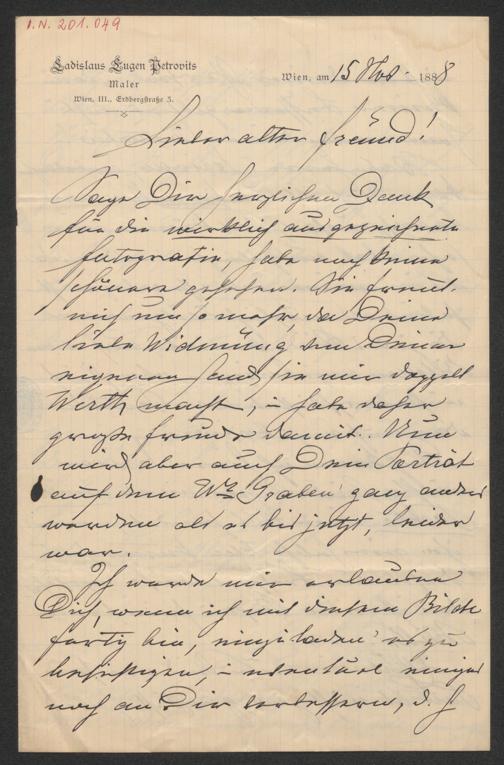 I.N. 201.049
Ladislaus Eugen Petrovits
Maler
Wien, III., Erdbergstraße 3.
Wien, am 15 Nov. 1888
Lieber alter Freund!
Sage Dir herzlichen Dank
für die wirklich ausgezeichnete
Fotografie, habe noch keine
schönere gesehen. Sie freut
mich um so mehr, da Deine
liebe Widmung von Deiner
eigenen Hand sie mir doppelt
Werth macht, – habe daher
große Freude damit. Nun
wird aber auch Dein Porträt
auf dem Graben ganz anders
werden als es bis jetzt, leider
war.
Ich werde mir erlauben
Dich, wenn ich mit diesem Bilde
fertig bin, einzuladen es zu
besichtigen, – eventuel einiges
noch an Dir verbessern, d. h.